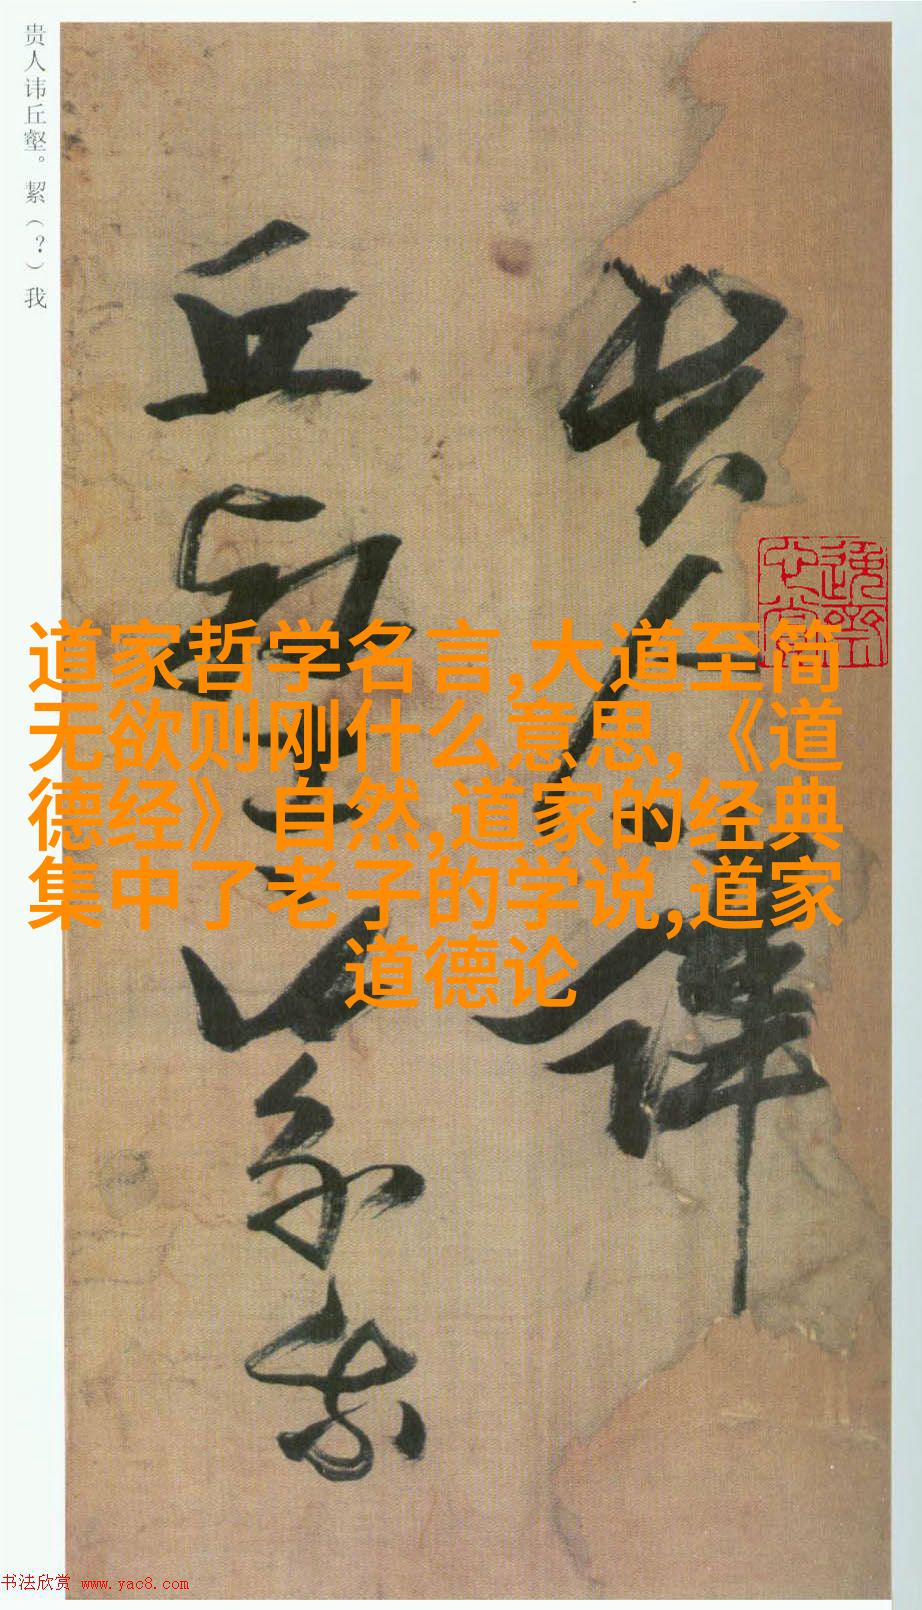 贵人讳丘壑。絜（？）我
贵人讳
丘壑。絜我
道家哲学名言,大道至简
无欲则刚什么意思,《道
德经》自然,道家的经典
集中了老子的学说,道家
道德论
书法欣赏 www.yac8.com